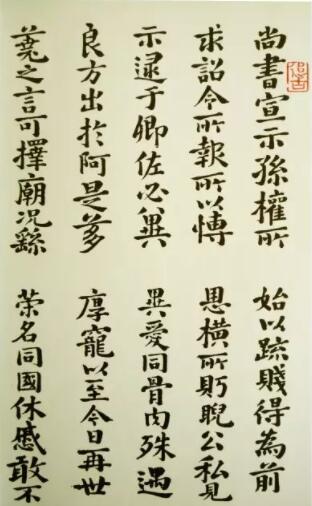 尚書宣示孫權所
求詔令所報所以愽
示逮于卿佐必冀
良方出於阿是芻
蕘之言可擇廟况繇
始以疏賤得為前
恩橫所眄睨公私見
異愛同骨肉殊遇
厚寵以至今日再世
榮名同國休慼敢不